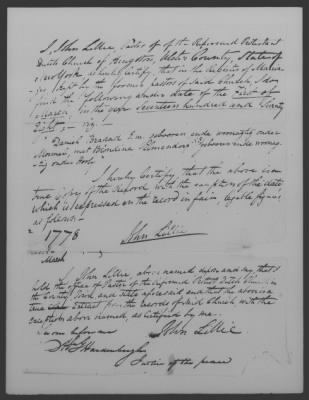 I, John Lillie, Pastor of of the Reformed Protestant
Dutch Church of Kingston, Ulster County, State of
New York do hereby Certify, that in the Register of Marria-
ges kept by the former Pastors of said Church, I do
find the following under date of the First of
March in the year Seventeen hundred and Seventy
Eight
"Daniel Broadhead
I hereby Certify, that the above is a
true Copy of the Record, with the exception of the date
which is expressed on the record in fair, legible figures
as follows -
1778
March
John Lillie
John Lillie above named deposes and says, that he
holds the office of Pastor of the Reformed Prot. Dutch Church in
the County, Town, and State aforesaid and that the above is a
true Extract from the records of said Church with the
exception above named, as Certified by me.
Sworn before me
John Lillie
Hardenbergh
Justice of the peace